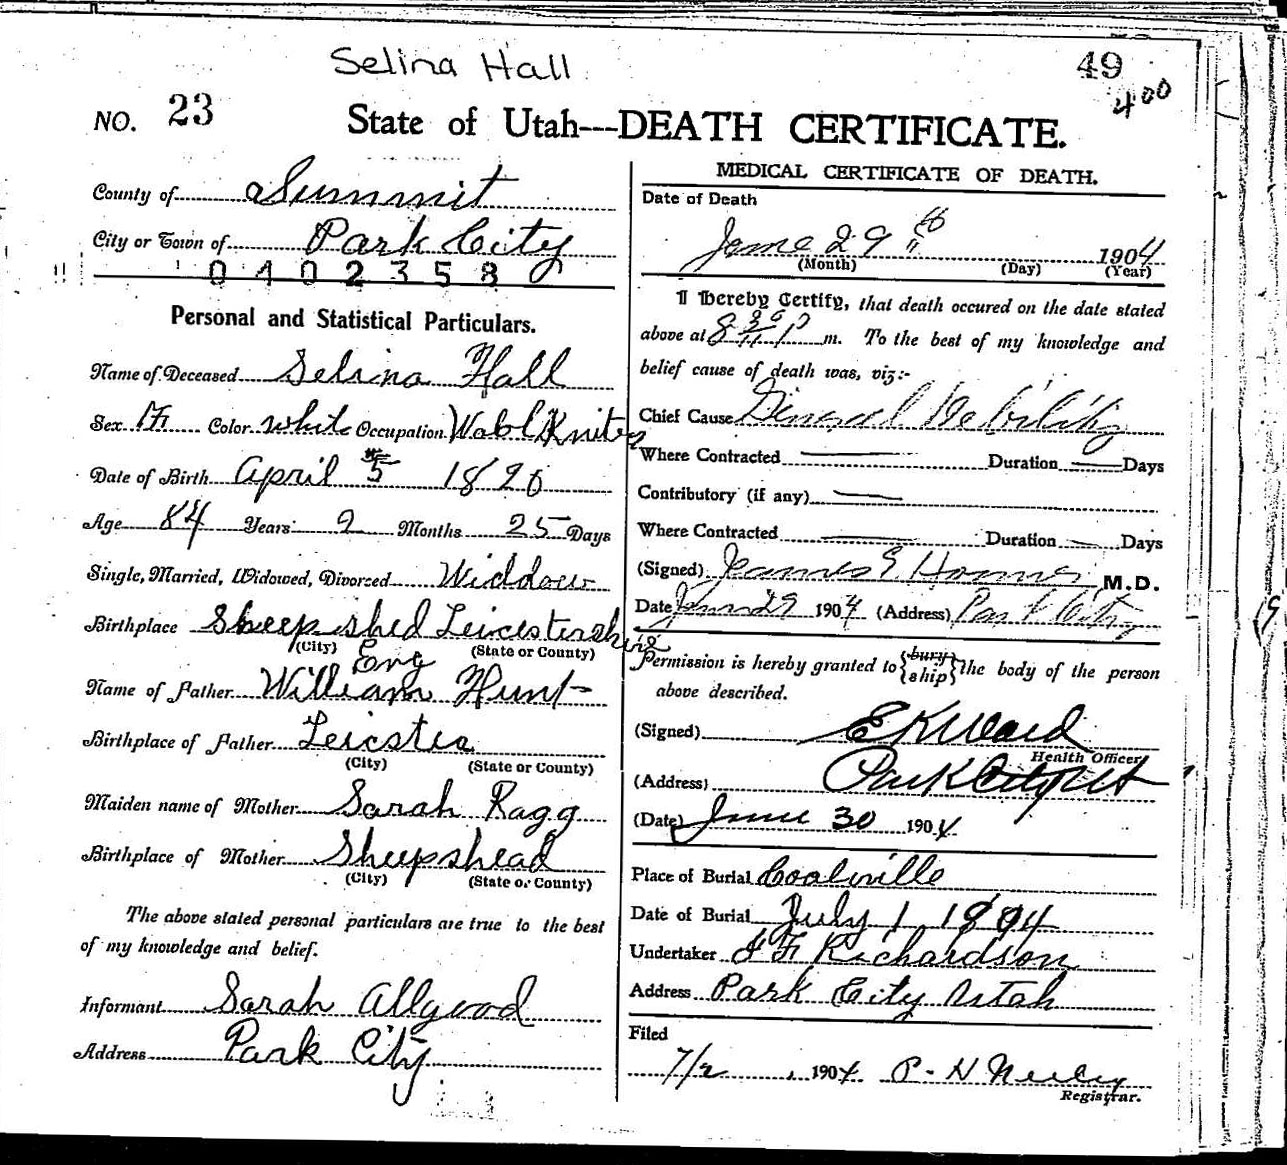 Selina Hall
49
400
NO. 23
State of Utah---DEATH CERTIFICATE.
County of Summit
City or Town of Park City
0402358
Personal and Statistical Particulars.
Name of Deceased Selina Hall
Sex Color White Occupation
Date of Birth April 5 1820
Age 84 Years 2 Months 25 Days
Single, Married, Widowed, Divorced Widdow
Birthplace Sheepshed Leicestershire
(City) (State or County)
Eng
Name of Father William Hunt
Birthplace of Father
(City) (State or County)
Maiden name of Mother Sarah Ragg
Birthplace of Mother Sheepshead
(City) (State or County)
The above stated personal particulars are true to the best
of my knowledge and belief.
Informant Sarah Allgood
Address Park City
MEDICAL CERTIFICATE OF DEATH.
Date of Death
June 29 th 1904
(Month) (Day) (Year)
I Hereby Certify, that death occured on the date stated
above at 8 30 P m. To the best of my knowledge and
belief cause of death was, viz:-
Chief Cause General Debility
Where Contracted Duration Days
Contributory (if any)
Where Contracted Duration Days
(Signed) James E M.D.
Date June 29 1904 (Address) Park City
Permission is hereby granted to {bury ship} the body of the person
above described.
(Signed) E K Ward
Health Officer
(Address) Park City Ut
(Date) June 30 1904
Place of Burial Coalville
Date of Burial July 1 1904
Undertaker Richardson
Address Park City Utah
Filed
7/2, 1904 P. H
Registrar.